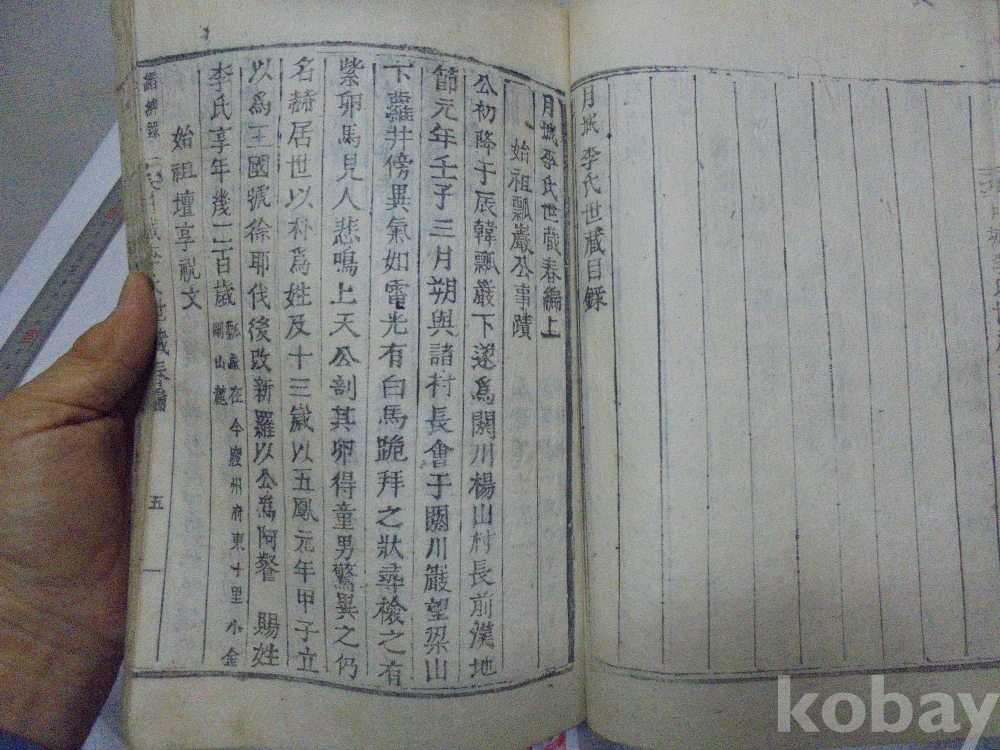 月城李氏世蔵目録
月城李氏世蔵春編上
始祖瓢巖公事蹟
公初降于辰韓瓢巖下遂爲閼川楊山村長前漢地
節元年壬子三月朔與諸村長會于閼川巖望梁山
下蘿井傍異氣如電光有白馬跪拜之狀尋檢之有
紫卵馬見人悲鳴上天公剖其卵得童男驚異之仍
名赫居世以朴爲姓及十三歲以五鳳元年甲子立
以爲王國號徐耶伐後改新羅以公爲阿餐 賜姓
李氏享年幾二百歲 瓢巖在今慶州府東十里小金
剛山麓
始祖壇享祝文
五
kobay